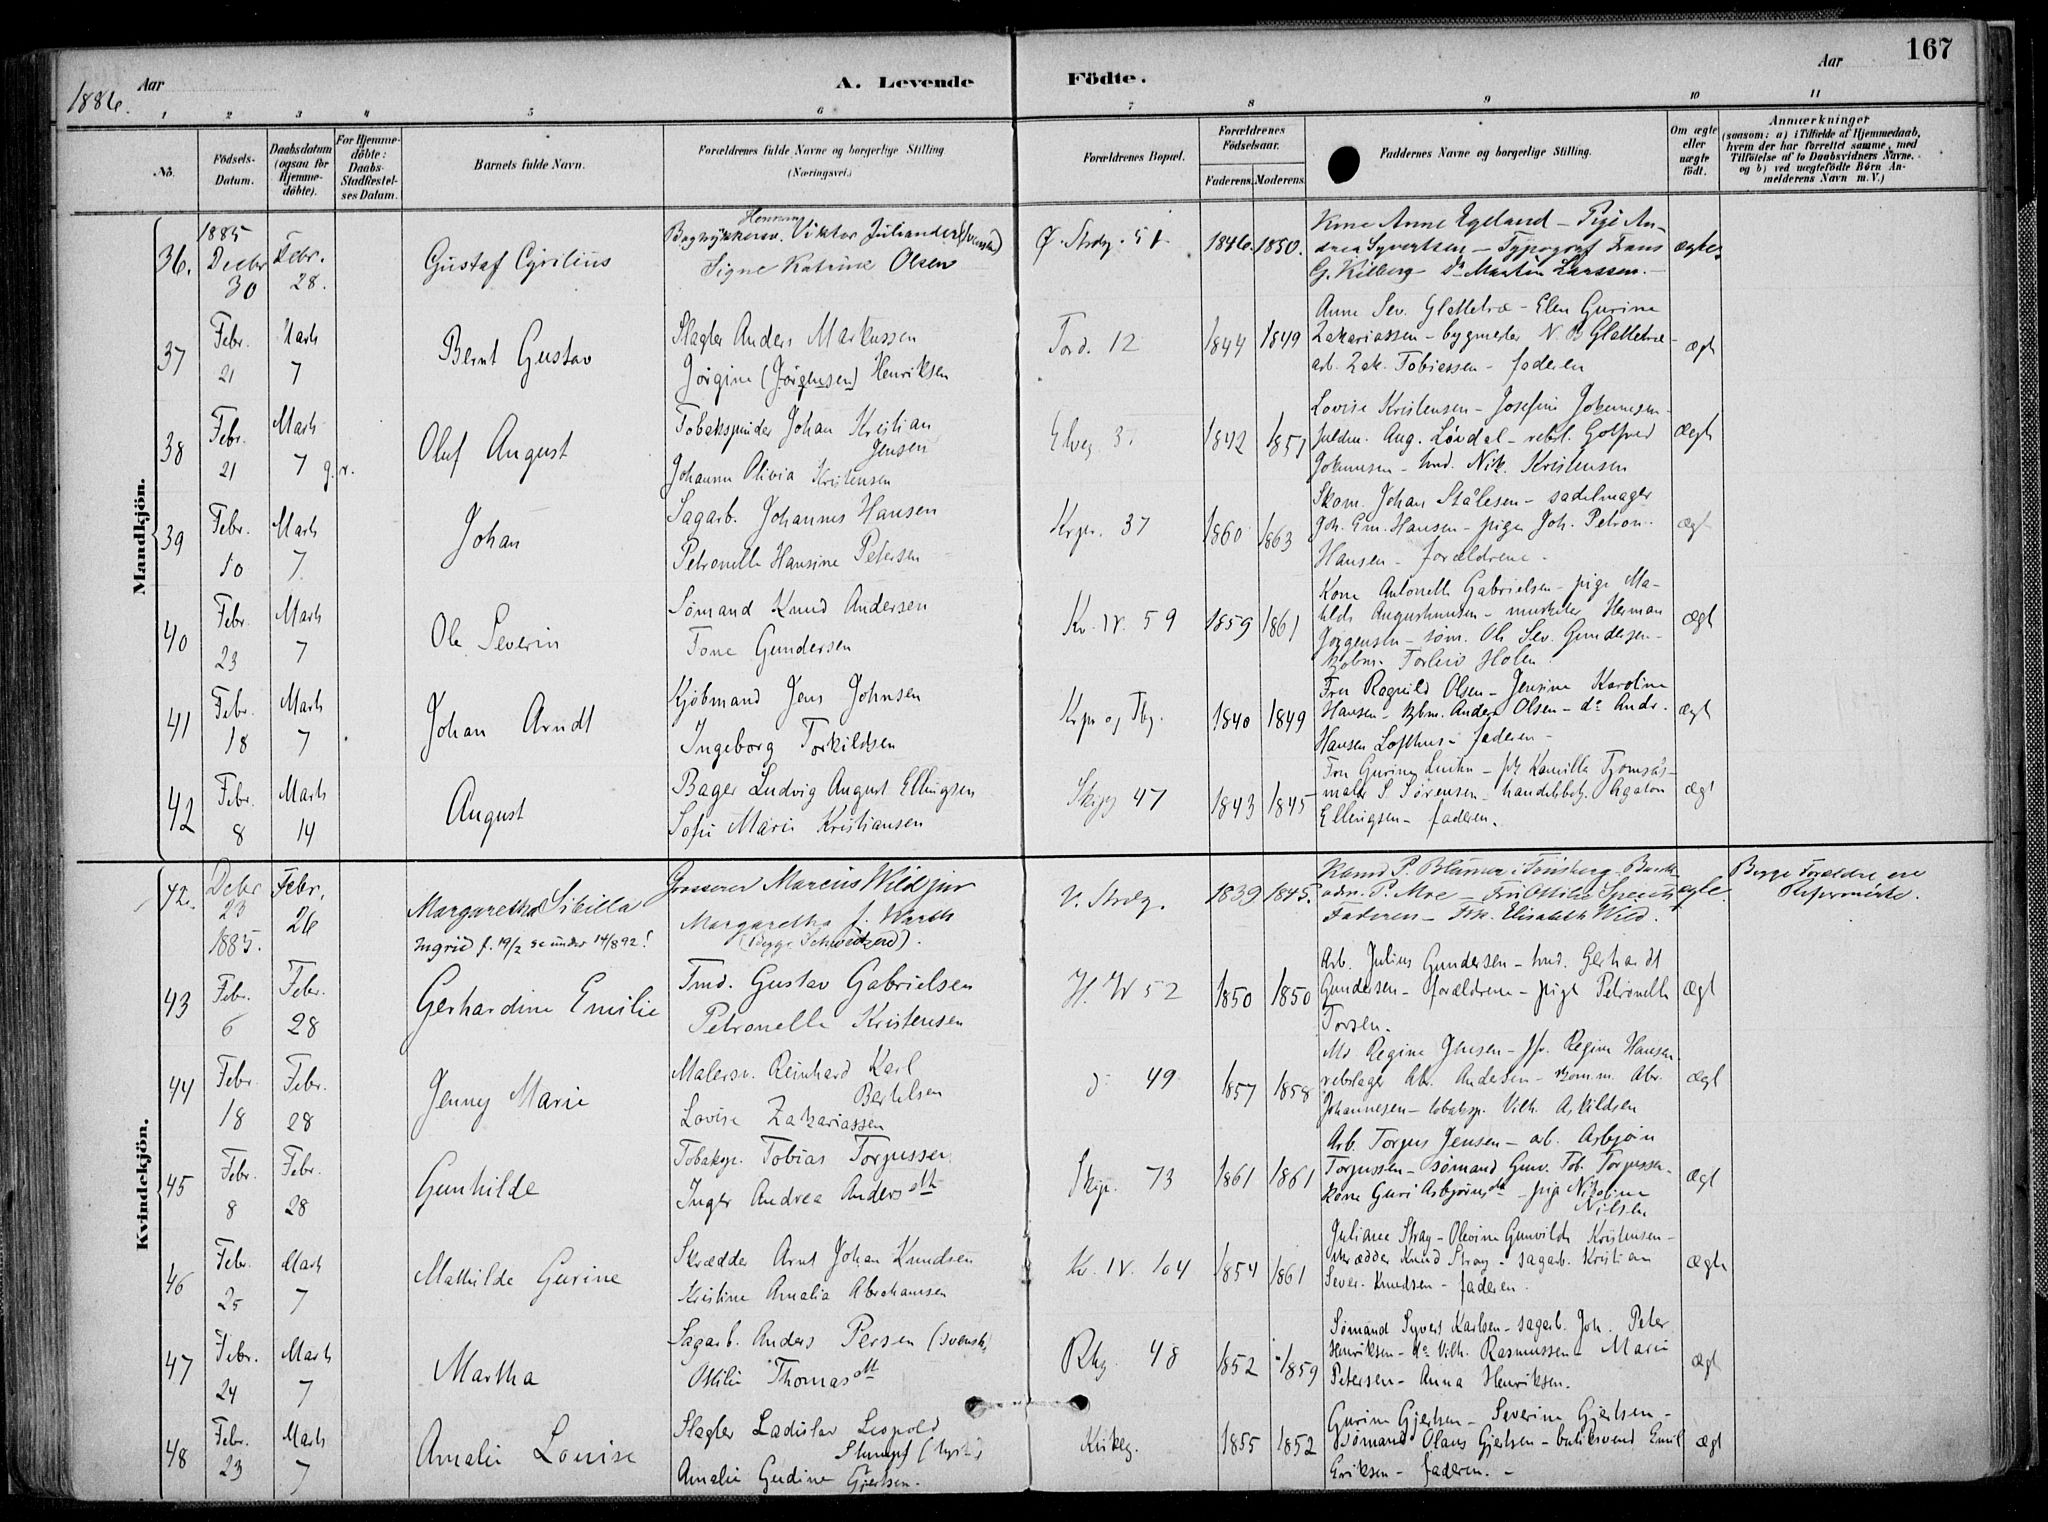 1886.
Aar
A. Levende
Födte.
Aar
167
1 2 3 4 5 6 7 8 9 10 11
No.
Födsels-Datum.
Daabsdatum (ogsaa for Hjemme-döbte).
For Hjemme-döbte: Daabs-Stadfæstel-ses Datum.
Barnets fulde Navn.
Forældrenes fulde Navne og borgerlige Stilling (Næringsvei.)
Forældrenes Bopæl.
Forældrenes Födselsaar.
Faderens.
Moderens.
Faddernes Navne og borgerlige Stilling.
Om ægte eller uægte födt.
Anmærkninger
(saasom: a) i Tilfælde af Hjemmedaab, hvem der har forrettet samme, med Tilföielse af to Daabsvidners Navne. og b) ved uægtefödte Börn An-melderens Navn m. V.)
Mandkjön.
36. 1885 Decbr 30 Febr. 28. Gustaf Cyrilius
Viktor Juliander
Signe Katrine Olsen
51 1846. 1850.
Kone Anne Egeland - Pige An-
drea Syvertsen - Typograf Frans
G. Kilberg - do Martin Larssen. -
ægte
37 Febr. 21 Marts 7 Bernt Gustav
Slagter Anders Markussen
Jørgine (Jørgensen) Henriksen
Tord. 12 1844 1849
Anne Sev. Glattetre - Elen Gurine
Zakariassen - bygmester N. B. Glattetre -
arb. Zak. Tobiassen - faderen
ægt
38 Febr. 21 Marts 7 g. v. Oluf August
Tobakspinder Johan Kristian
Jensen
Johanne Olivia Kristensen
Elveg 3 1842 1857
Lovise Kristensen - Josefine Johannesen -
Aug. Løvdal - rebsl. Golfred
Johannesen - Nik. Kristensen
ægt
39 Febr. 10 Marts 7. Johan
Sagarb. Johannes Hansen
Petronelle Hansine Petersen
37 1860 1863
Skom. Johan Stålesen - sadelmager
Joh. Em. Hansen - pige Joh. Petron.
Hansen - forældrene -
ægt
40 Febr. 23 Marts 7 Ole Severin
Sømand Knud Andersen
Tone Gundersen
Kv. IV. 59 1859 1861
Kone Antonette Gabrielsen - pige Ma-
tilde Augustinusen - Herman
Jørgensen - søm. Ole Sev. Gundersen -
Torleiv Holen
ægt
41 Febr. 18 Marts 7 Johan Arndt
Kjøbmand Jens Johnsen
Ingeborg Torkildsen
1840 1849
Fru Ragnild Olsen - Jensine Karoline
Hansen - kjbm. Anders Olsen - do Andr.
Hansen Lofthus - faderen -
ægt
42 Febr. 8 Marts 14 August
Bager Ludvig August Ellingsen
Sofie Marie Kristiansen
47 1843 1845
Fru Gurine - Kamilla
maler S. Sørensen - Agaton
Ellingsen - faderen.
ægt
Kvindekjön.
42. Debr 23 1885. Febr. 26 Margaretha Sibilla
Ingrid f. 19/2 se under 14/8 92!
Grosserer Marcus Wild jun
Margaretha f.
(Begge Schweizere).
V. Strdg. 1839 1845.
i Tønsberg -
P. Moe - Ottilie
Faderen - Frk. Elisabeth Wild.
ægte.
Begge Forældre ere
Reformerte.
43 Febr. 6 Febr. 28 Gerhardine Emilie
Tmd. Gustav Gabrielsen
Petronelle Kristensen
52 1850 1850
Arb. Julius Gundersen - Gerhardt
Gundersen - forældrene - pige Petronelle
Torsen.
ægt
44 Febr. 18 Febr. 28 Jenny Marie
Malersv. Reinhard Karl
Berthelsen
Lovise Zakariassen
49 1857 1858
Regine Jensen - Regine Hansen
rebslager Abr. Andersen - Abr.
Johannesen - tobaksp. Vilh. Askildsen
ægt
45 Febr. 8 Febr. 28 Gunhilde
Tobaksp. Tobias Torjussen
Inger Andrea Andersdtt
73 1861 1861
Arb. Torjus Jensen - arb. Asbjørn
Torjussen - sømand Gunv. Tob. Torjussen -
Kone Guri Asbjørnsdtt - pige Nikoline
Nilsen
ægt
46 Febr. 25 Marts 7 Mathilde Gurine
Skrædder Arnt Johan Knudsen
Kristine Amalia Abrahamsen
Kv. IV. 104 1854 1861
Juliane Stray - Olevine Gunvilde Kristensen -
skrædder Knud Stray - sagarb. Kristian
Sever. Knudsen - faderen.
ægte
47 Febr. 24 Marts 7 Martha
Sagarb. Anders Persen (svensk)
Ottilie Thomasdtt
48 1852 1859
Sømand Syvert Karlsen - sagarb. Joh. Peter
Henriksen - do Vilh. Rasmussen - Marie
Petersen - Anna Henriksen.
ægt
48 Febr. 23 Marts 7 Amalie Louise
Slagter Ladislav Leopold
Stumpf (tysk)
Amalie Gudine Gjertsen.
Kirkeg. 1855 1852
Gurine Gjertsen - Severine Gjertsen -
sømand Olaus Gjertsen - butiksvend Emil
Eriksen - faderen. -
ægt